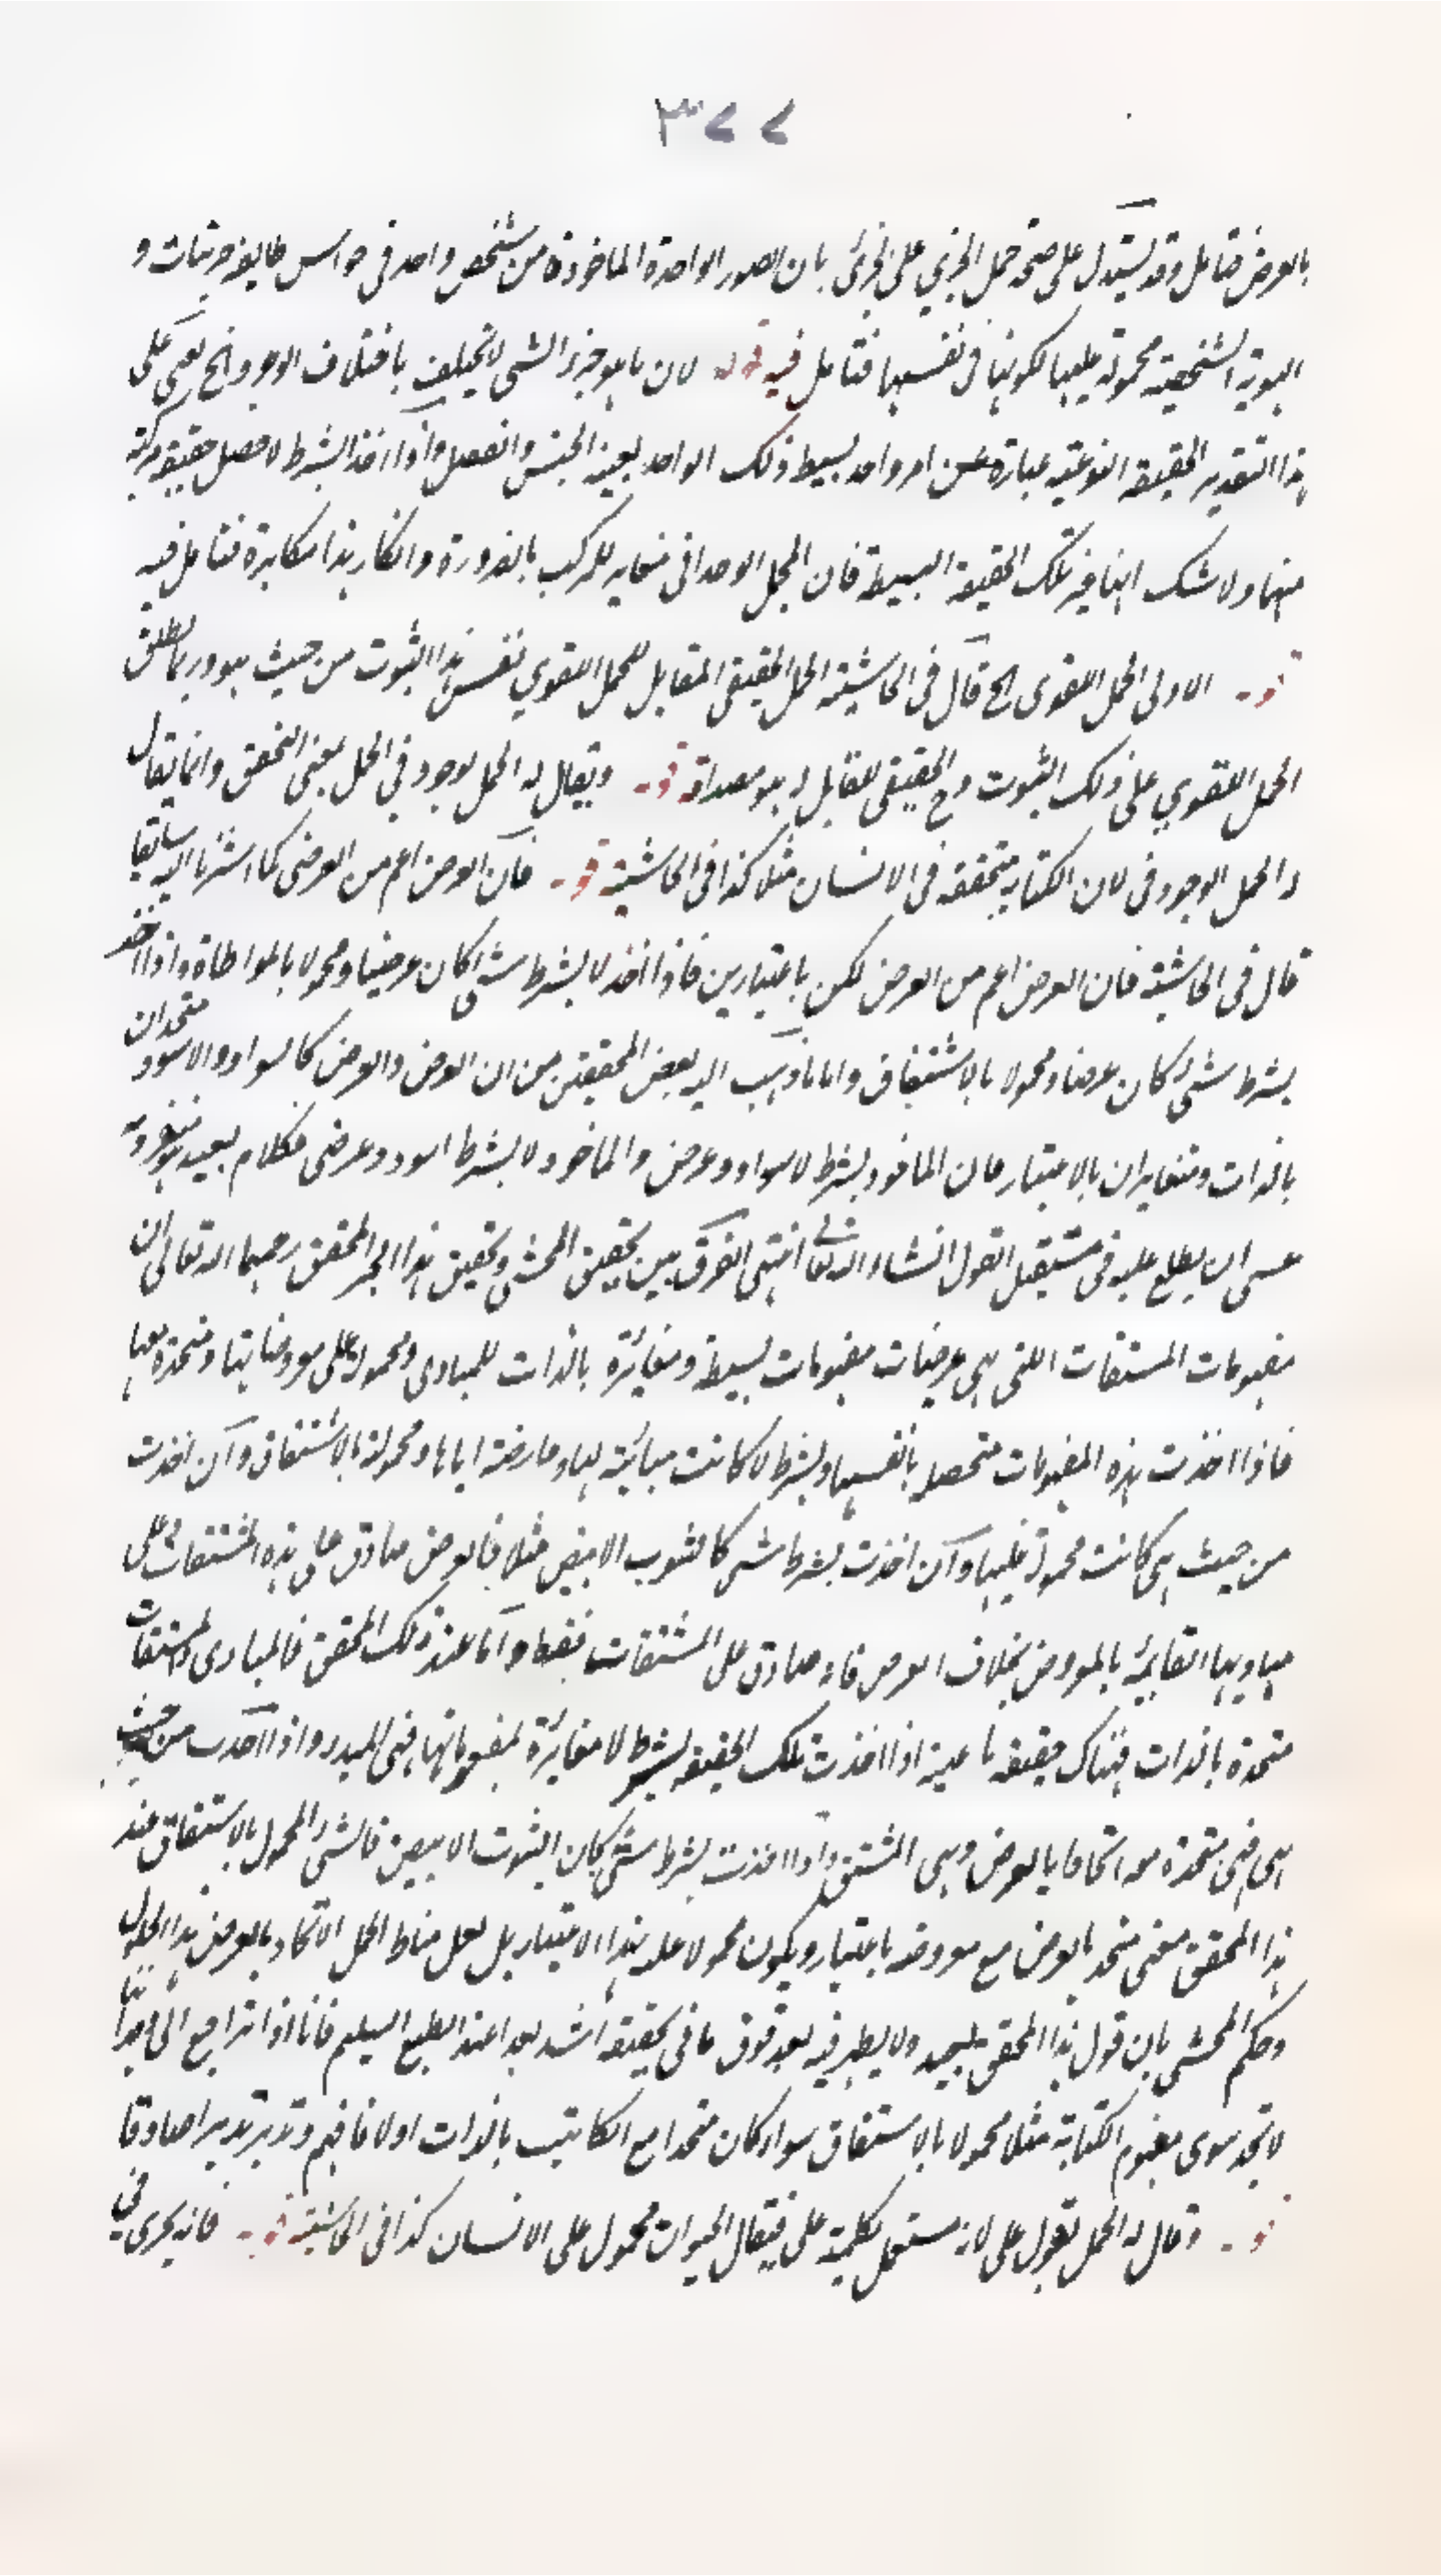 ٣٧٧
بالعرض فتامل وقد يستدل على صحة حمل الجزئي على الجزئى بان الصور الواحدة الماخوذة من شخص واحد فى حواس طايفة جزئيات و
الهوية الشخصية محمولة عليها لكونها فى نفسها فتامل فيه قوله لان ما هو جزء الشى لا يختلف باختلاف الوجود الخ يعنى على
هذا التقدير الحقيقة النوعية عبارة عن امر واحد بسيط ذلك الواحد بعينه الجنس والفصل واذا اخذ بشرط لا حصل حقيقة مركبة
منهما ولا شك انها غير تلك الحقيقة البسيطة فان المجمل الوحدانى مغاير للمركب بالضرورة وانكار هذا مكابرة فتامل فيه
قوله الاولى الحمل اللغوى الخ قال فى الحاشية الحمل الحقيقى المقابل للحمل اللغوي نفس هذا الثبوت من حيث هو وربما يطلق
الحمل اللغوي على ذلك الثبوت وح الحقيقى المقابل له هو مصداقه قوله ويقال له الحمل بوجود فى الحمل بمعنى التحقق وانما يقال
له الحمل الوجود فى لان الكتابة متحققة فى الانسان مثلا كذا فى الحاشية قوله فان العرض اعم من العرضى كما اشرنا اليه سابقا
قال فى الحاشية فان العرض اعم من العرض لكن باعتبارين فاذا اخذ لا بشرط شئ كان عرضيا ومحمولا بالمواطاة واذا اخذ
بشرط شئ كان عرضا ومحمولا بالاشتقاق واما ما ذهب اليه بعض المحققين من ان العرض والعرض كالسواد والاسود متحدان
بالذات ومتغايران بالاعتبار فان الماخوذ بشرط لا سواد وعرض والماخوذ لا بشرط اسود وعرضى فكلام بعيد
عسى ان يطلع عليه فى مستقبل القول انشاء الله تعالى انتهى الفرق بين تحقيق المحشى وتحقيق هذا الحبر المحقق رحمهما الله تعالى ان
مفهومات المشتقات التى هى عرضيات مفهومات بسيطة ومغائرة بالذات للمبادى ومحمولة على معروضاتها ومتحدة معها
فاذا اخذت هذه المفهومات متحصلة بانفسها وبشرط لا كانت مبائنة لها وعارضة اياها ومحمولة بالاشتقاق وان اخذت
من حيث هى كانت محمولة عليها وان اخذت بشرط شى كالثوب الابيض مثلا فالعرض صادق على هذه المشتقات وعلى
مباديها القايمة بالمعروض بخلاف العرضى فانه صادق على المشتقات فقط واما عند ذلك المحقق فالمبادى والمشتقات
متحدة بالذات فهناك حقيقة ناعية اذا اخذت تلك الحقيقة بشرط لا مغائرة لمفهوماتها فهى المبدء واذا اخذت من حيث
هى فهى متحدة معه اتحادا بالعرض وهى المشتق واذا اخذت بشرط شئ كان الثوب الابيض فالشئ المحمول بالاشتقاق عند
هذا المحقق معنى متحد بالعرض مع معروضه باعتبار ويكون محمولا عليه بهذا الاعتبار بل لعل مناط الحمل الاتحاد بالعرض هذا الحلول
وحكم المحشى بان قول هذا المحقق بعيد ولا يظهر فيه بعد فوق ما فى تحقيقه اشد بعدا عند الطبع السليم فانا اذا نراجع الى وجداننا
لا نجد سوى مفهوم الكتابة مثلا محمولا بالاشتقاق سواء كان متحدا مع الكاتب بالذات اولا فافهم وتدبر تدبرا صادقا
قوله وقال له الحمل بقول على لانه مستعمل بكلمة على فيقال الحيوان محمول على الانسان كذا فى الحاشية قوله فانه يجرى فى